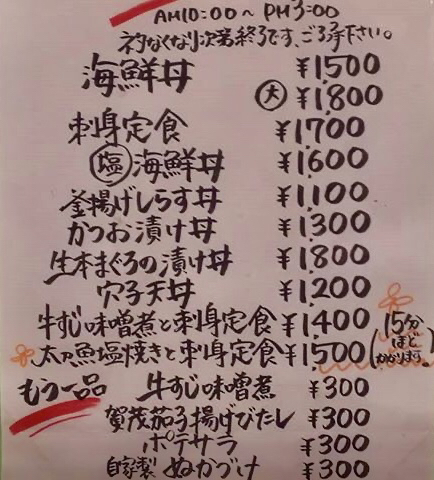 AM10:00～PM3:00
ネタなくなり次第終了です、ご了承下さい。
海鮮丼 ¥1,500
大 ¥1,800
刺身定食 ¥1,700
塩 海鮮丼 ¥1,600
釜揚げしらす丼 ¥1,100
かつお漬け丼 ¥1,300
生本まぐろの漬け丼 ¥1,800
穴子天丼 ¥1,200
牛すじ味噌煮と刺身定食 ¥1,400
太刀魚塩焼きと刺身定食 ¥1,500 (15分ほどかかります。)
もう一品 牛すじ味噌煮 ¥300
賀茂茄子揚げびたし ¥300
ポテサラ ¥300
自家製 ぬかづけ ¥300